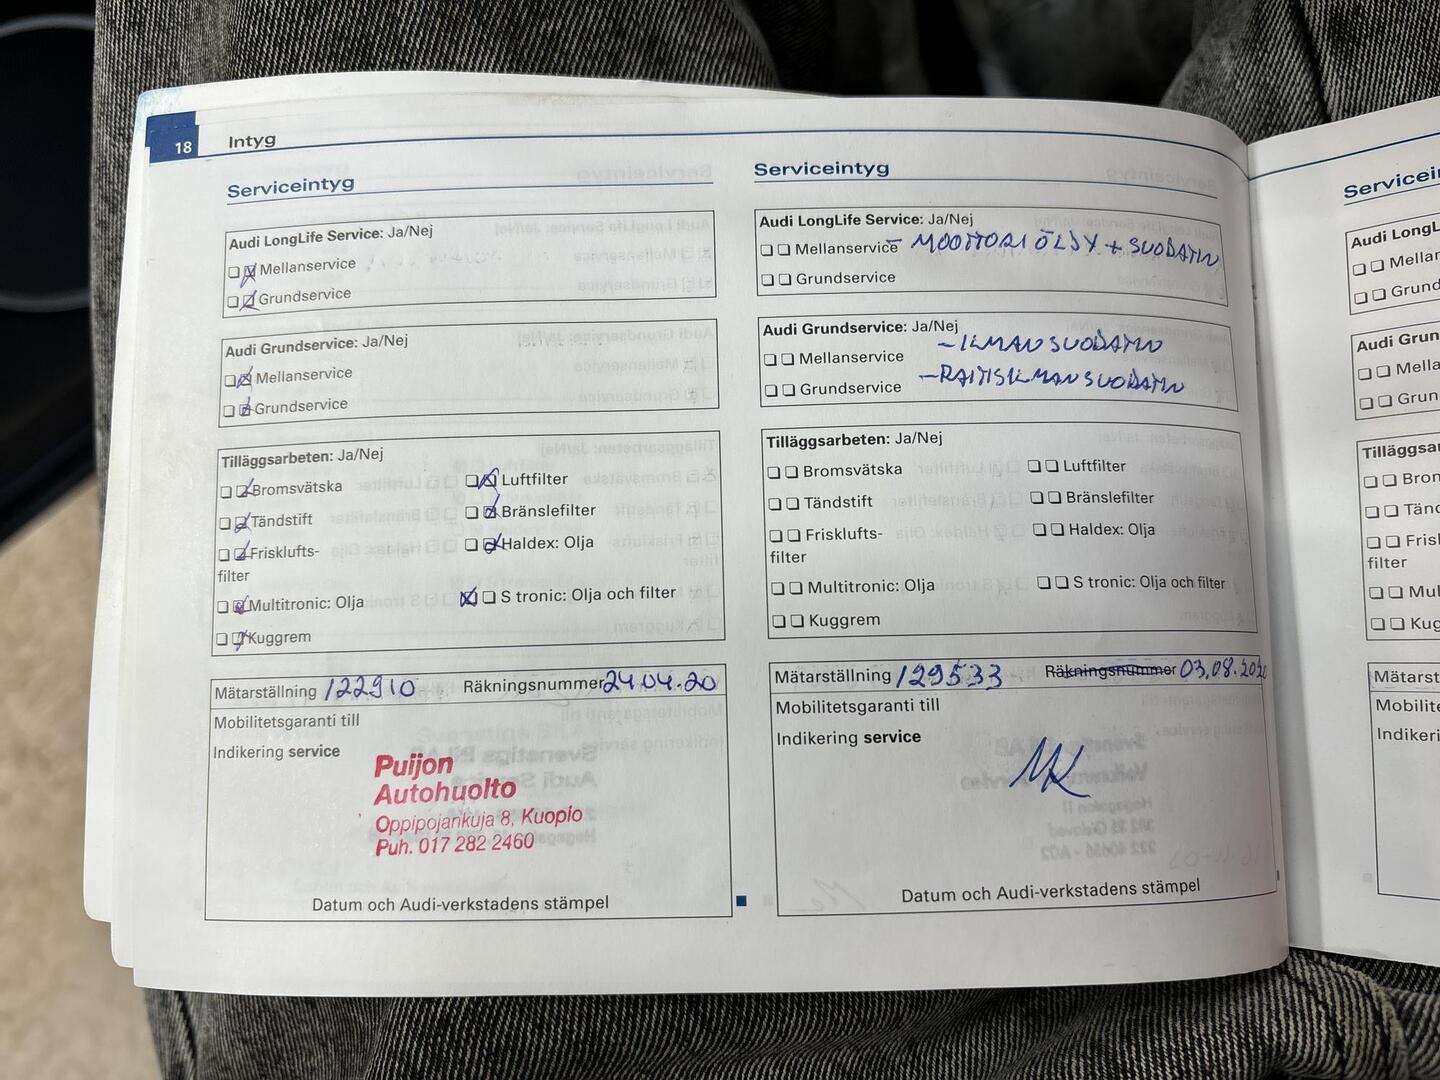 18 Intyg
Serviceintyg
Audi LongLife Service: Ja/Nej
Mellanservice
Grundservice
Audi Grundservice: Ja/Nej
Mellanservice
Grundservice
Tilläggsarbeten: Ja/Nej
Bromsvätska Luftfilter
Tändstift Bränslefilter
Frisklufts- Haldex: Olja
filter
Multitronic: Olja S tronic: Olja och filter
Kuggrem
Mätarställning 122910 Räkningsnummer 24.04.20
Mobilitetsgaranti till
Indikering service
Puijon
Autohuolto
Oppipojankuja 8, Kuopio
Puh. 017 282 2460
Datum och Audi-verkstadens stämpel
Serviceintyg
Audi LongLife Service: Ja/Nej
Mellanservice - MOOTTORIÖLJY + SUODATIN
Grundservice
Audi Grundservice: Ja/Nej
- ILMANSUODATIN
Mellanservice
- RAITISILMANSUODATIN
Grundservice
Tilläggsarbeten: Ja/Nej
Bromsvätska Luftfilter
Tändstift Bränslefilter
Frisklufts- Haldex: Olja
filter
Multitronic: Olja S tronic: Olja och filter
Kuggrem
Mätarställning 129533 Räkningsnummer 03.08.202
Mobilitetsgaranti till
Indikering service
MK
Datum och Audi-verkstadens stämpel
Servicei
Audi LongL
Mellar
Grund
Audi Grun
Mella
Grun
Tilläggsa
Bron
Tänd
Fris
filter
Mul
Kug
Mätarst
Mobilite
Indikeri